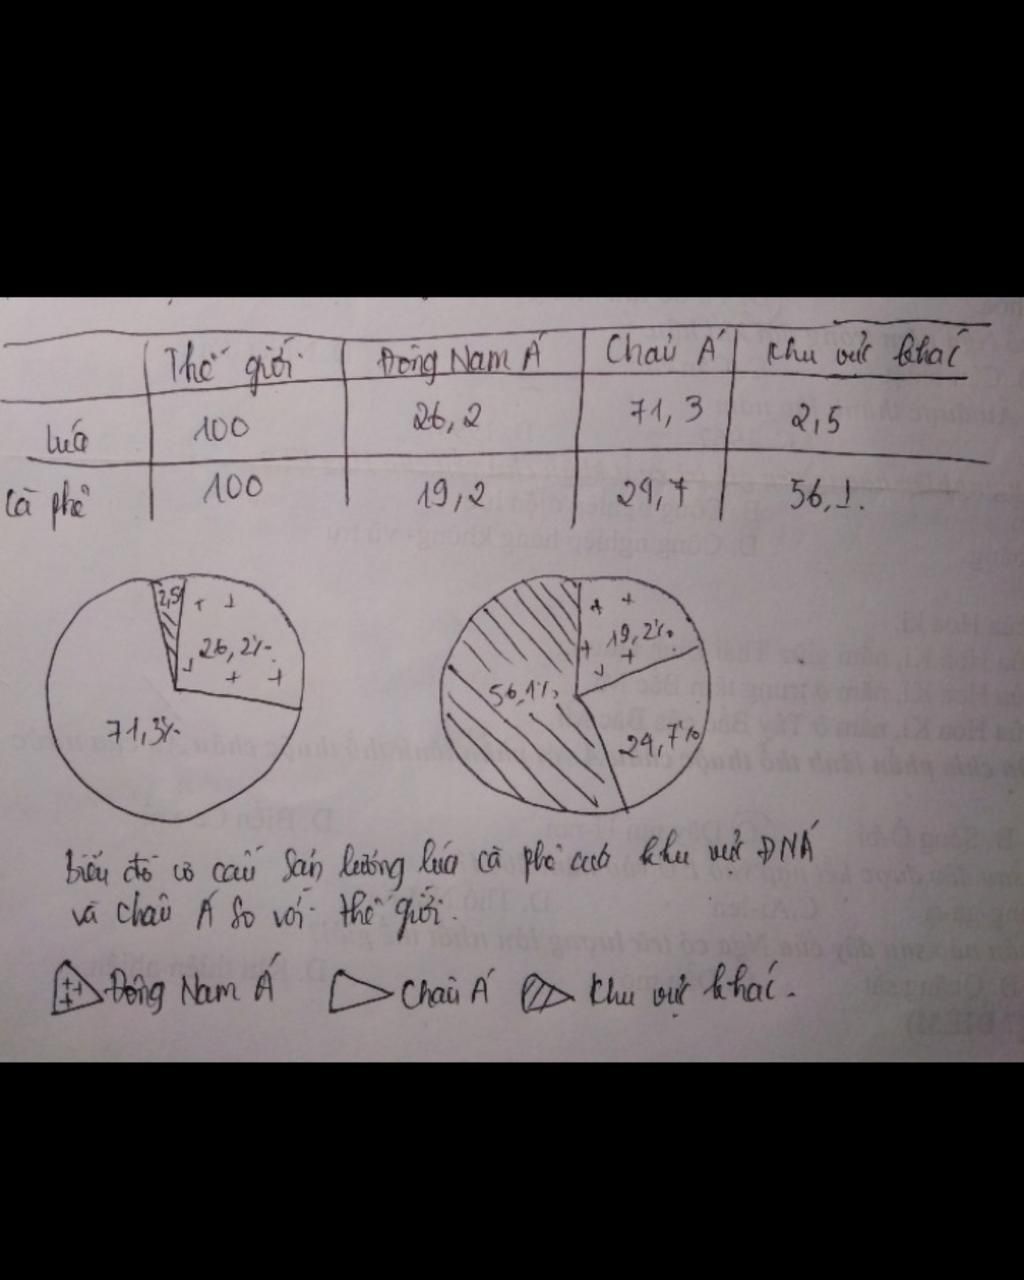 Thế giới Đông Nam Á Châu Á Khu vực khác
lúa 100 26,2 71,3 2,5
Cà phê 100 19,2 24,7 56,1.
2,5 26,2% 71,3%
19,2% 56,1% 24,7%
Biểu đồ cơ cấu sản lượng lúa cà phê của khu vực ĐNÁ
và châu Á so với thế giới.
Đông Nam Á Châu Á Khu vực khác.